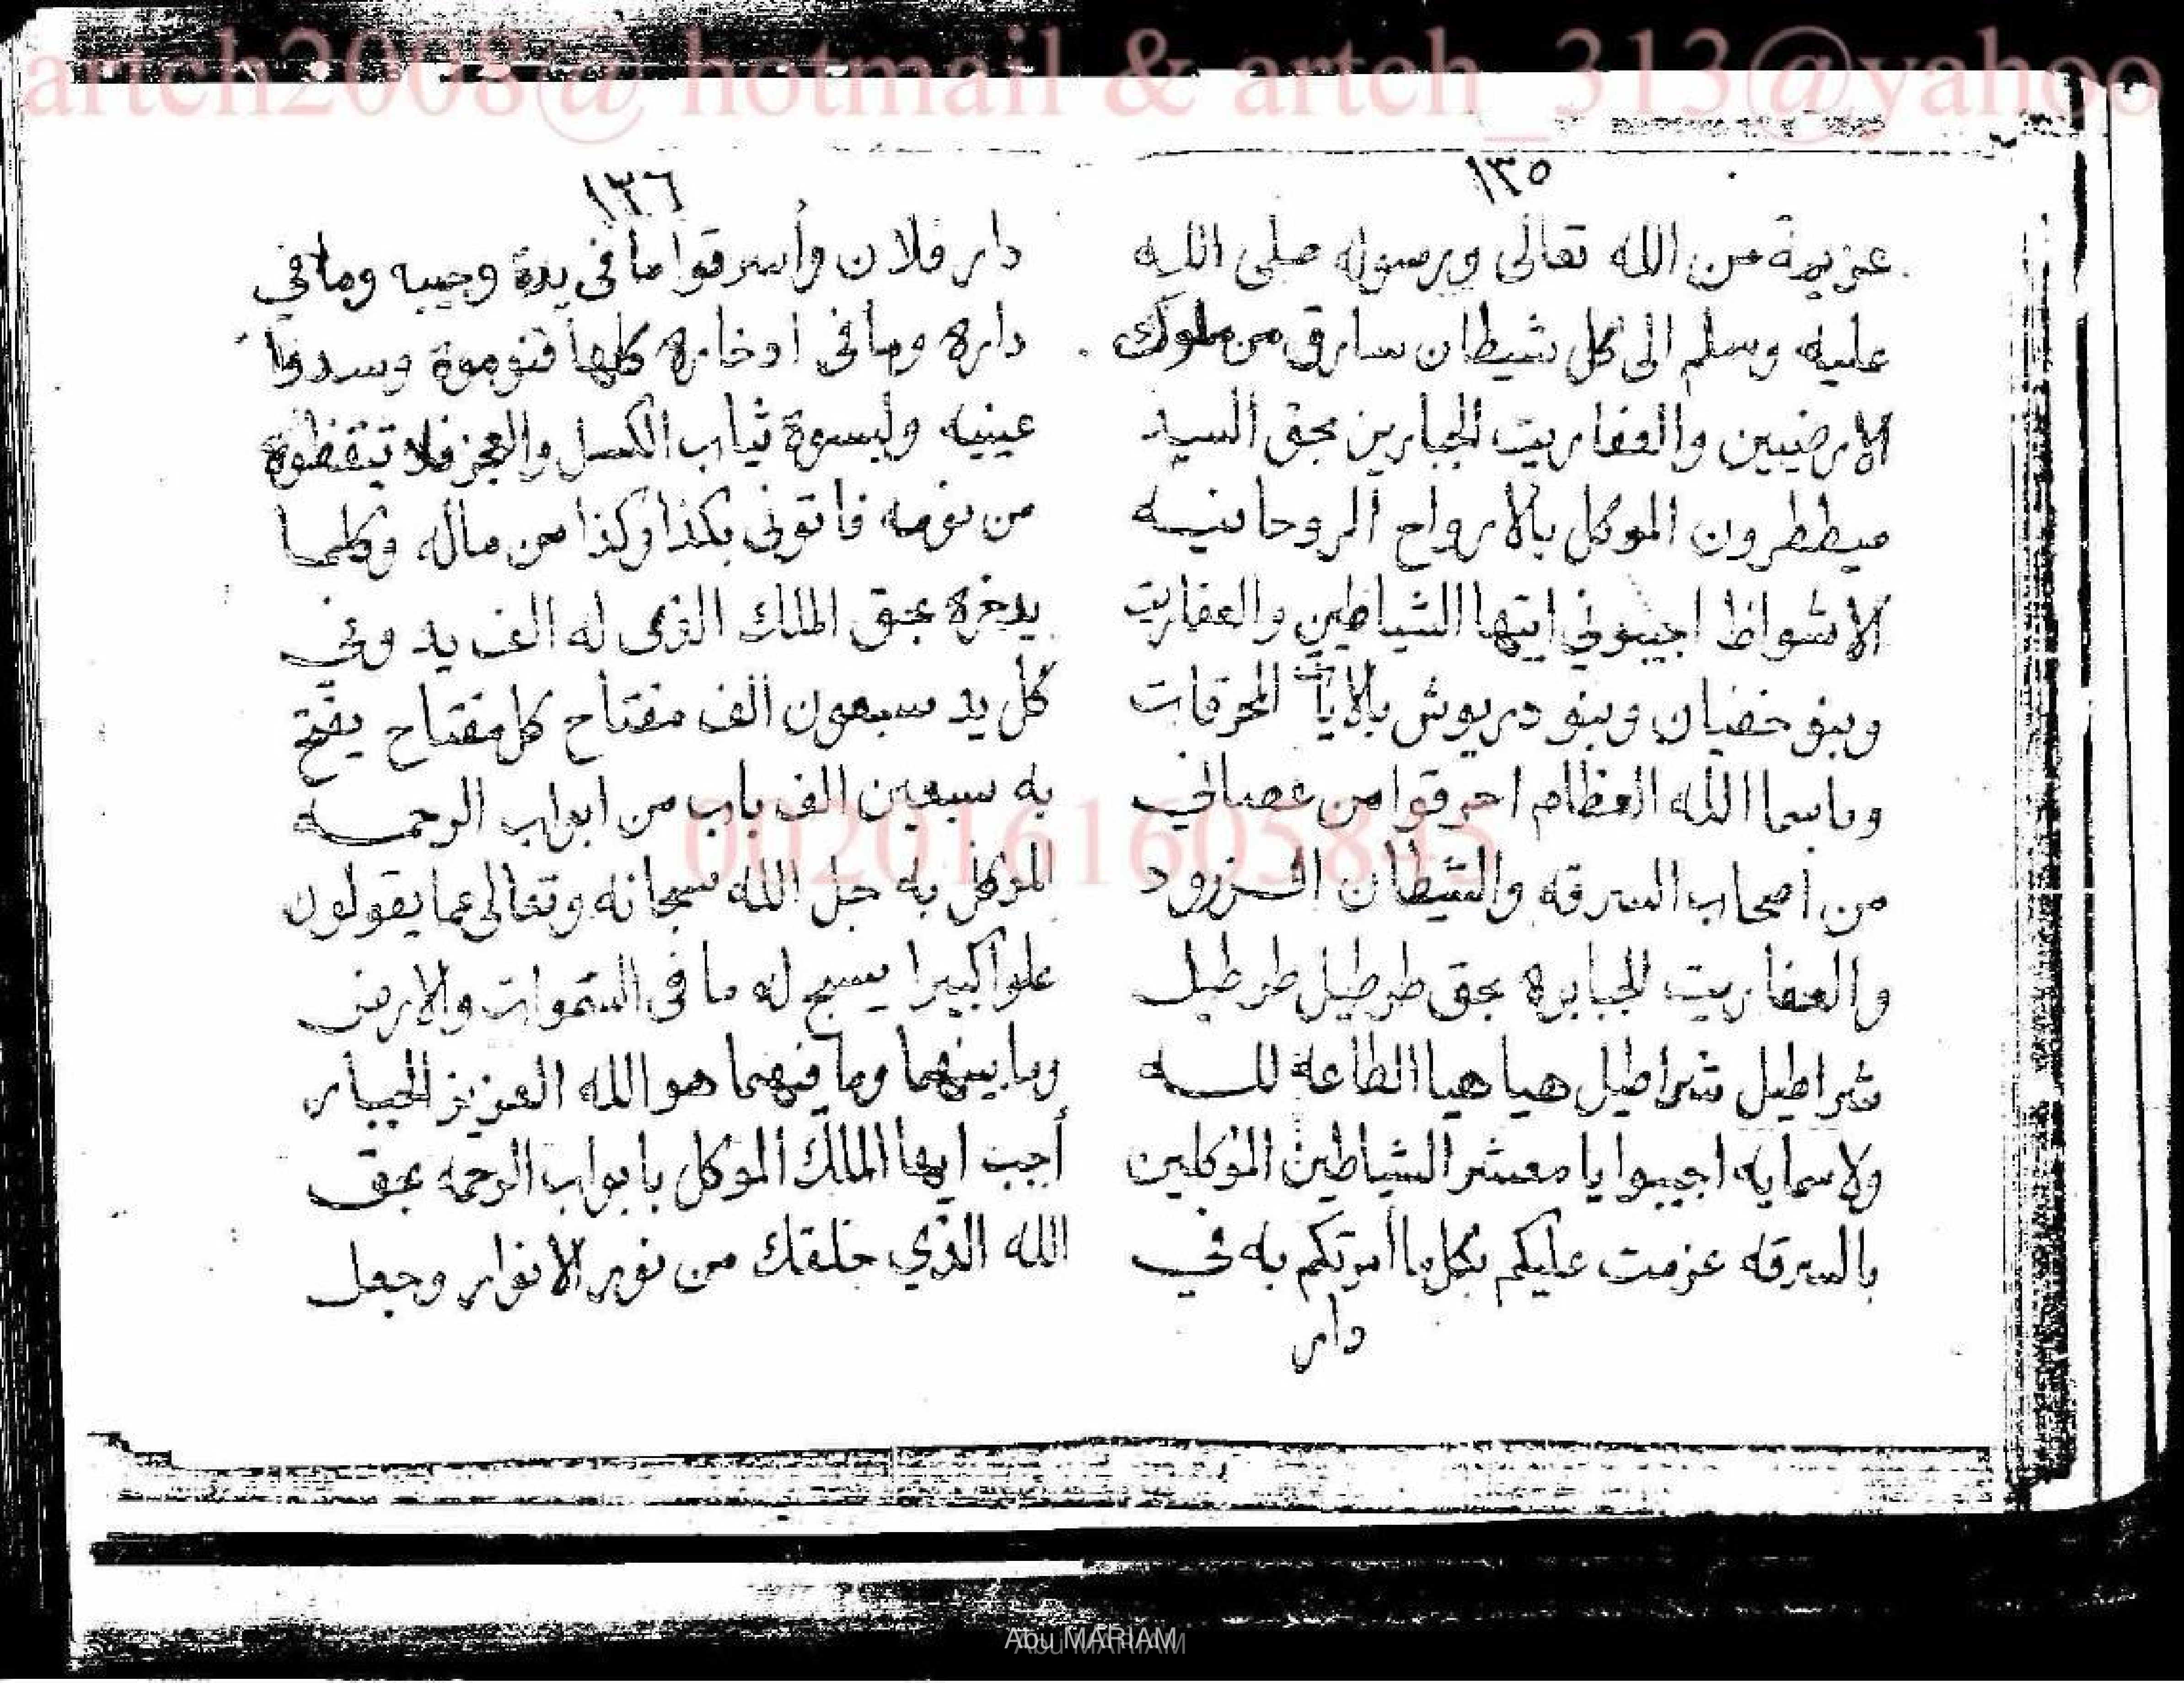 artch2008@ hotmail & artch_313@yahoo
١٣٥
عزيمة من الله تعالى ورسوله صلى الله
عليه وسلم الى كل شيطان سارق من ملوك
الارضيين والعفاريت الجبارين بحق السيد
ميططرون الموكل بالارواح الروحانيه
الاشواظ اجيبوني ايتها الشياطين والعفاريت
وبنو خفيان وبنو دريوش بالايا المحرقات
وباسما الله العظام احرقوا من عصاني
من اصحاب السرقه والشيطان
والعفاريت الجبابره بحق طرطيل طرطيل
شراطيل شراطيل هيا هيا الطاعة لله
ولاسمايه اجيبوا يا معشر الشياطين الموكلين
بالسرقه عزمت عليكم بكل ما أمرتكم به في
دار
١٣٦
دار فلان وأسرقوا ما فى يدة وجيبه وما في
داره وما فى اوخاره كلها فنوموة وسدوا
عينيه ولبسوة ثياب الكسل والعجز فلا تيقظوة
من نومه فاتونى بكذا وكذا من ماله وكلما
يدخره بحق الملك الذى له الف يد وفي
كل يد سبعون الف مفتاح كل مفتاح يفتح
به سبعين الف باب من ابواب الرحمه
الموكل به جل الله سبحانه وتعالى عما يقولون
علوا كبيرا يسبح له ما فى السموات والارض
وما بينهما وما فيهما هو الله العزيز الجبار
أجب ايها الملك الموكل بابواب الرحمه بحق
الله الذي خلقك من نور الانوار وجعل
0020161605845
Abu MARIAM